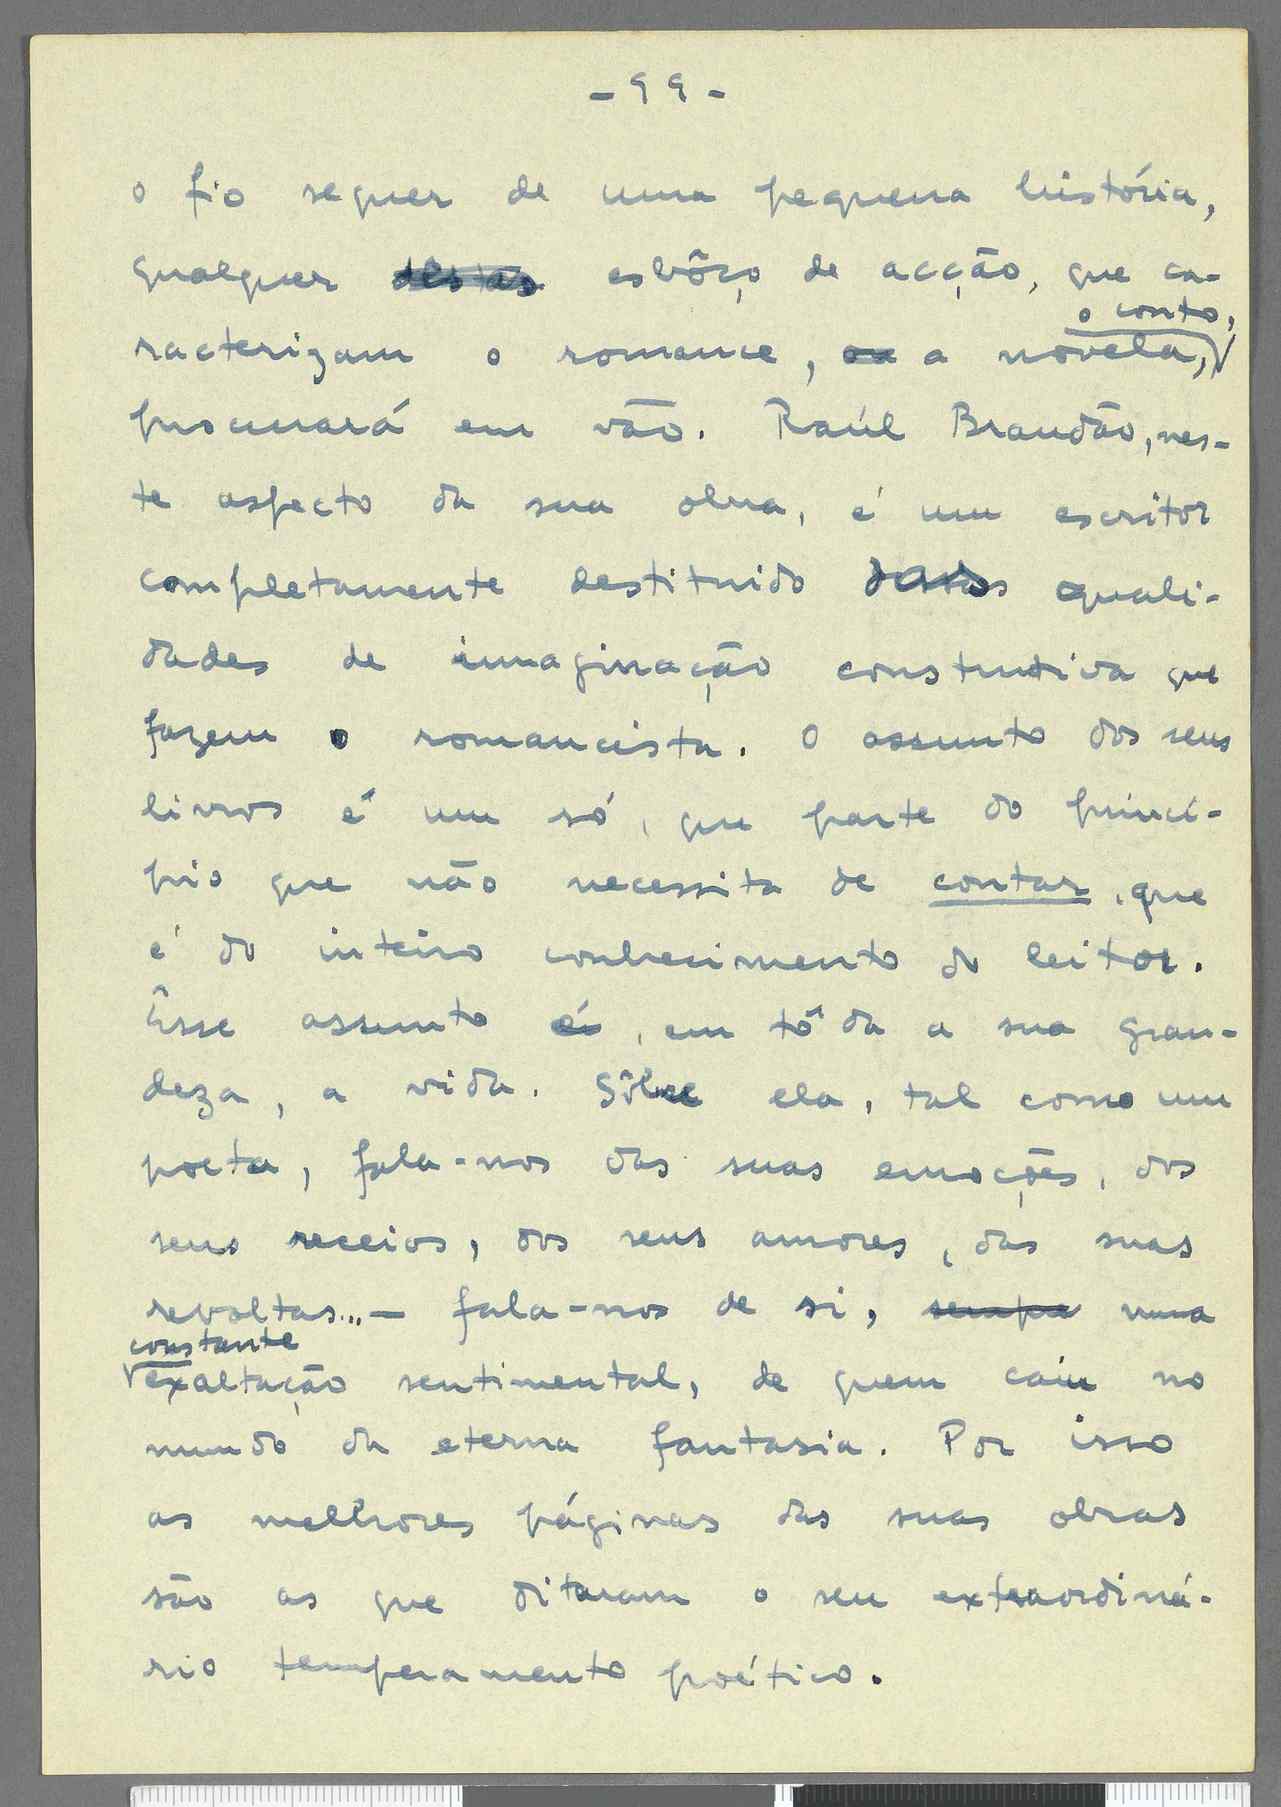 - 99 -
o fio sequer de uma pequena história,
qualquer esbôço de acção, que ca-
o conto,
racterizam o romance, ou a novela,
procurará em vão. Raúl Brandão, nes-
te aspecto da sua obra, é um escritor
completamente destituido das quali-
dades de imaginação construtiva que
fazem o romancista. O assunto dos seus
livros é um só, que parte do princí-
pio que não necessita de contar, que
é do inteiro conhecimento do leitor.
Êsse assunto é, em tôda a sua gran-
deza, a vida. Sôbre ela, tal como um
poeta, fala-nos das suas emoções, dos
seus receios, dos seus amores, das suas
revoltas... — fala-nos de si, sempre numa
constante
exaltação sentimental, de quem caiu no
mundo da eterna fantasia. Por isso
as melhores páginas das suas obras
são as que ditaram o seu extraordiná-
rio temperamento poético.